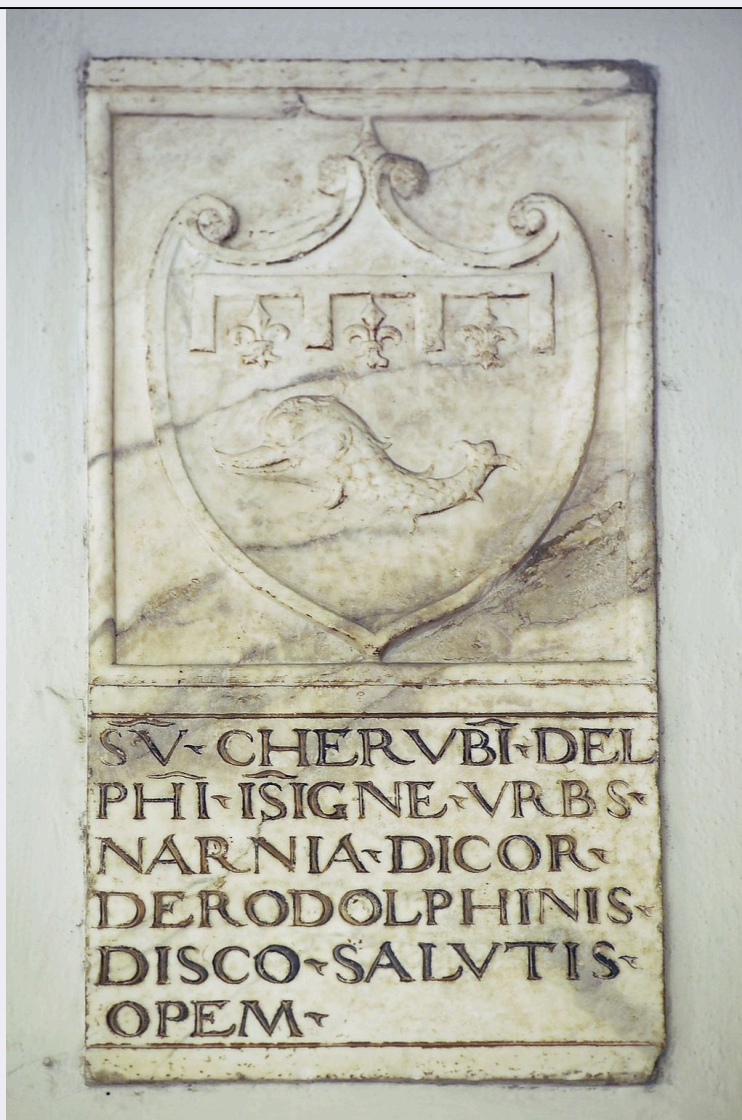 SV̅· CHERVBI̅·DEL
PHI̅·IS̅IGNE·VRBS·
NARNIA·DICOR·
DERODOLPHINIS·
DISCO·SALVTIS·
OPEM·